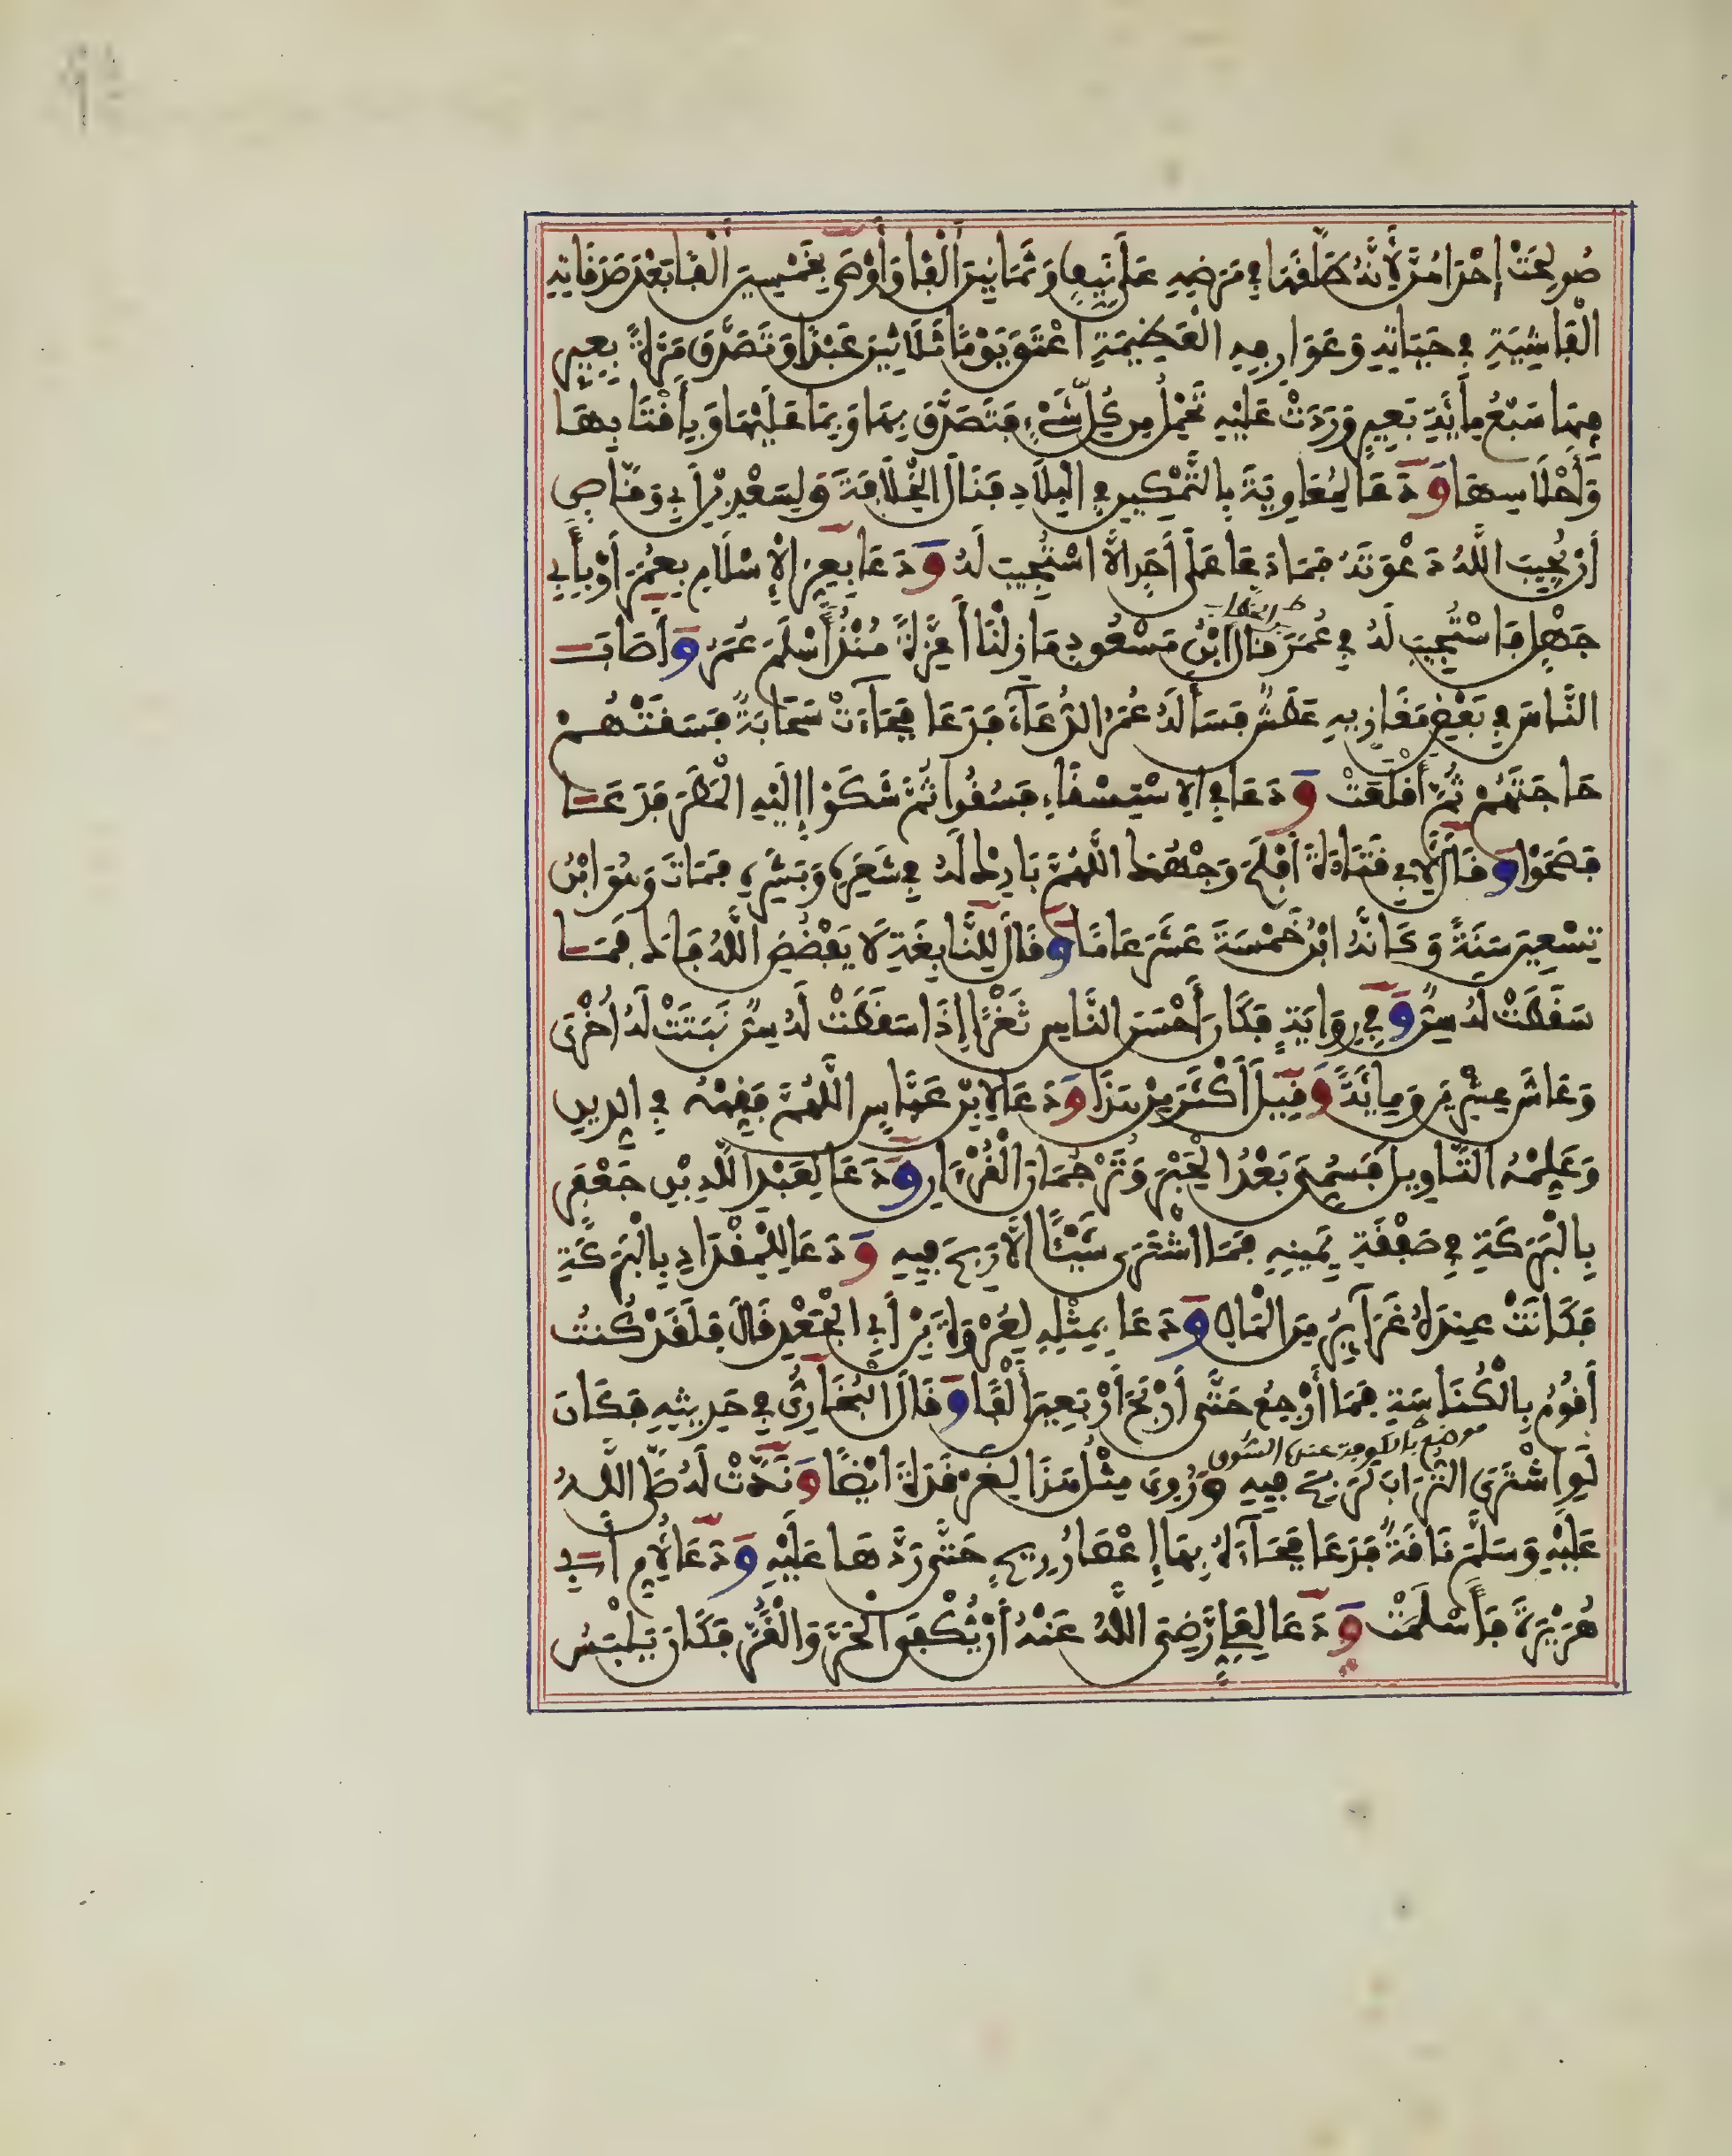 صُولِحَتْ إِحْدَاهُنَّ لِأَنَّهُ طَلَّقَهَا فِي مَرَضِهِ عَلَى نَيِّفٍ وَثَمَانِينَ أَلْفًا وَأَوْصَى بِخَمْسِينَ أَلْفًا بَعْدَ صَدَقَاتِهِ
الْفَاشِيَةِ فِي حَيَاتِهِ وَعَوَارِفِهِ الْعَظِيمَةِ أَعْتَقَ يَوْمًا ثَلَاثِينَ عَبْدًا وَتَصَدَّقَ مَرَّةً بِعِيرٍ
فِيهَا سَبْعُ مِائَةِ بَعِيرٍ وَرَدَتْ عَلَيْهِ تَحْمِلُ مِن كُلِّ شَيْءٍ فَتَصَدَّقَ بِهَا وَبِمَا عَلَيْهَا وَبِأَقْتَابِهَا
وَأَحْلَاسِهَا وَدَعَا لِمُعَاوِيَةَ بِالتَّمْكِينِ فِي الْبِلَادِ فَنَالَ الْخِلَافَةَ وَلِسَعْدِ بْنِ أَبِي وَقَّاصٍ
أَنْ يُجِيبَ اللَّهُ دَعْوَتَهُ فَمَا دَعَا عَلَى أَحَدٍ إِلَّا اسْتُجِيبَ لَهُ وَدَعَا بِعِزِّ الْإِسْلَامِ بِعُمَرَ أَوْ بِأَبِي
جَهْلٍ فَاسْتُجِيبَ لَهُ فِي عُمَرَ قَالَ ابْنُ مَسْعُودٍ مَا زِلْنَا أَعِزَّةً مُنْذُ أَسْلَمَ عُمَرُ وَأَصَابَ
النَّاسَ فِي بَعْضِ مَغَازِيهِ عَطَشٌ فَسَأَلَهُ عُمَرُ الدُّعَآءَ فَدَعَا فَجَآءَتْ سَحَابَةٌ فَسَقَتْهُمْ
حَاجَتَهُمْ ثُمَّ أَقْلَعَتْ وَدَعَا فِي الِاسْتِسْقَاءِ فَسُقُوا ثُمَّ شَكَوْا إِلَيْهِ الْمَطَرَ فَدَعَا
فَصَحَوْا وَقَالَ لِأَبِي قَتَادَةَ أَفْلَحَ وَجْهُكَ اللَّهُمَّ بَارِكْ لَهُ فِي شَعَرِهِ وَبَشَرِهِ فَمَاتَ وَهُوَ ابْنُ
تِسْعِينَ سَنَةً وَكَأَنَّهُ ابْنُ خَمْسَةَ عَشَرَ عَامًا وَقَالَ لِلنَّابِغَةِ لَا يَفْضُضِ اللَّهُ فَاكَ فَمَا
سَقَطَتْ لَهُ سِنٌّ وَفِي رِوَايَةٍ فَكَانَ أَحْسَنَ النَّاسِ ثَغْرًا إِذَا سَقَطَتْ لَهُ سِنٌّ نَبَتَتْ لَهُ أُخْرَى
وَعَاشَ عِشْرِينَ وَمِائَةً وَقِيلَ أَكْثَرَ مِنْ هَذَا وَدَعَا لِابْنِ عَبَّاسٍ اللَّهُمَّ فَقِّهْهُ فِي الدِّينِ
وَعَلِّمْهُ التَّاوِيلَ فَسُمِّيَ بَعْدُ الْحَبْرَ وَتَرْجُمَانَ الْقُرْءَانِ وَدَعَا لِعَبْدِ اللَّهِ بْنِ جَعْفَرٍ
بِالْبَرَكَةِ فِي صَفْقَةِ يَمِينِهِ فَمَا اشْتَرَى شَيْئًا إِلَّا رَبِحَ فِيهِ وَدَعَا لِلْمِقْدَادِ بِالْبَرَكَةِ
فَكَانَتْ عِنْدَهُ غَرَآئِرُ مِنَ الْمَالِ وَدَعَا بِمِثْلِهِ لِعُرْوَةَ بْنِ أَبِي الْجَعْدِ قَالَ فَلَقَدْ كُنتُ
أَقُومُ بِالْكُنَاسَةِ فَمَا أَرْجِعُ حَتَّى أَرْبَحَ أَرْبَعِينَ أَلْفًا وَقَالَ الْبُخَارِيُّ فِي حَدِيثِهِ فَكَانَ
موضع بالكوفة عند السوق
لَوِ اشْتَرَى التُّرَابَ لَرَبِحَ فِيهِ وَرُوِيَ مِثْلُ هَذَا لِغَرْقَدَةَ أَيْضًا وَنَدَّتْ لَهُ صَلَّى اللَّهُ
عَلَيْهِ وَسَلَّمَ نَاقَةٌ فَدَعَا فَجَآءَهُ بِهَا إِعْصَارُ رِيحٍ حَتَّى رَدَّهَا عَلَيْهِ وَدَعَا لِأُمِّ أَبِي
هُرَيْرَةَ فَأَسْلَمَتْ وَدَعَا لِعَلِيٍّ رَضِيَ اللَّهُ عَنْهُ أَنْ يُكْفَى الْحَرَّ وَالْقُرَّ فَكَانَ يَلْبَسُ